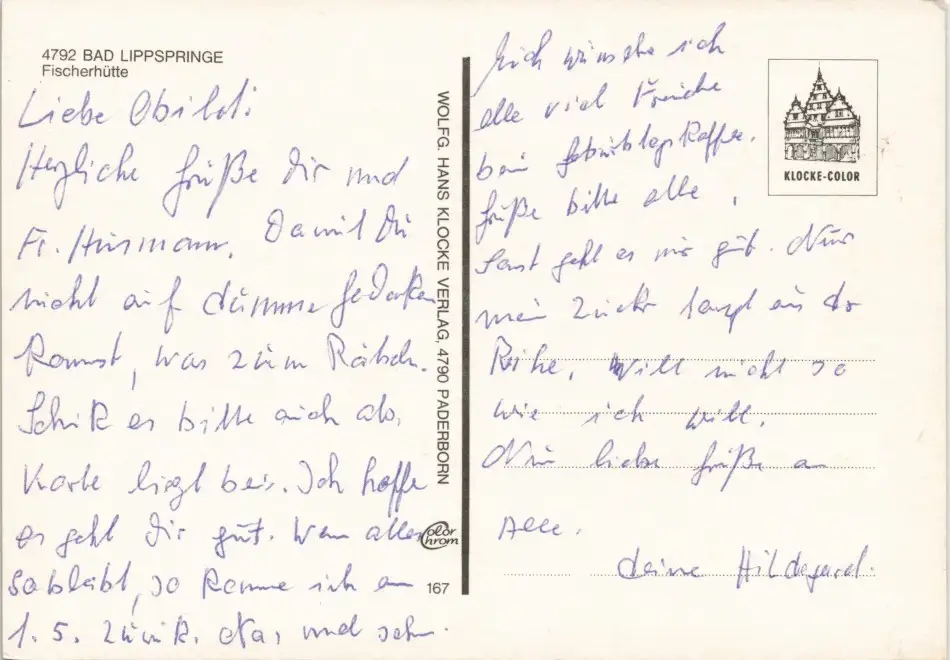 4792 BAD LIPPSPRINGE
Fischerhütte
Liebe
Herzliche Grüße Dir und
Fr. Damit Du
nicht auf dumme Gedanken
kommst, was zum Rätseln.
Schick es bitte auch ab.
Karte liegt bei. Ich hoffe
es geht Dir gut. Wenn alles
so bleibt, so komme ich am
1. 5. zurück. Na, und sehn.
WOLFG. HANS KLOCKE VERLAG, 4790 PADERBORN
Color
Chrom
167
Euch wünsche ich
alle viel Freude
beim Geburtstagskaffee.
Grüße bitte alle,
sonst geht es mir gut. Nur
mein Zucker tanzt aus der
Reihe, will nicht so
wie ich will.
Nun liebe Grüße an
Alle.
deine Hildegard.
KLOCKE-COLOR